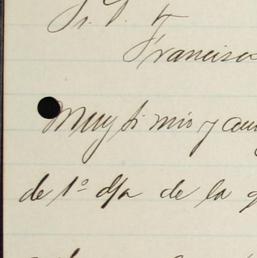 Sr. D. F
Francisco
Muy Sr mio y am
de 1º d/a de la q